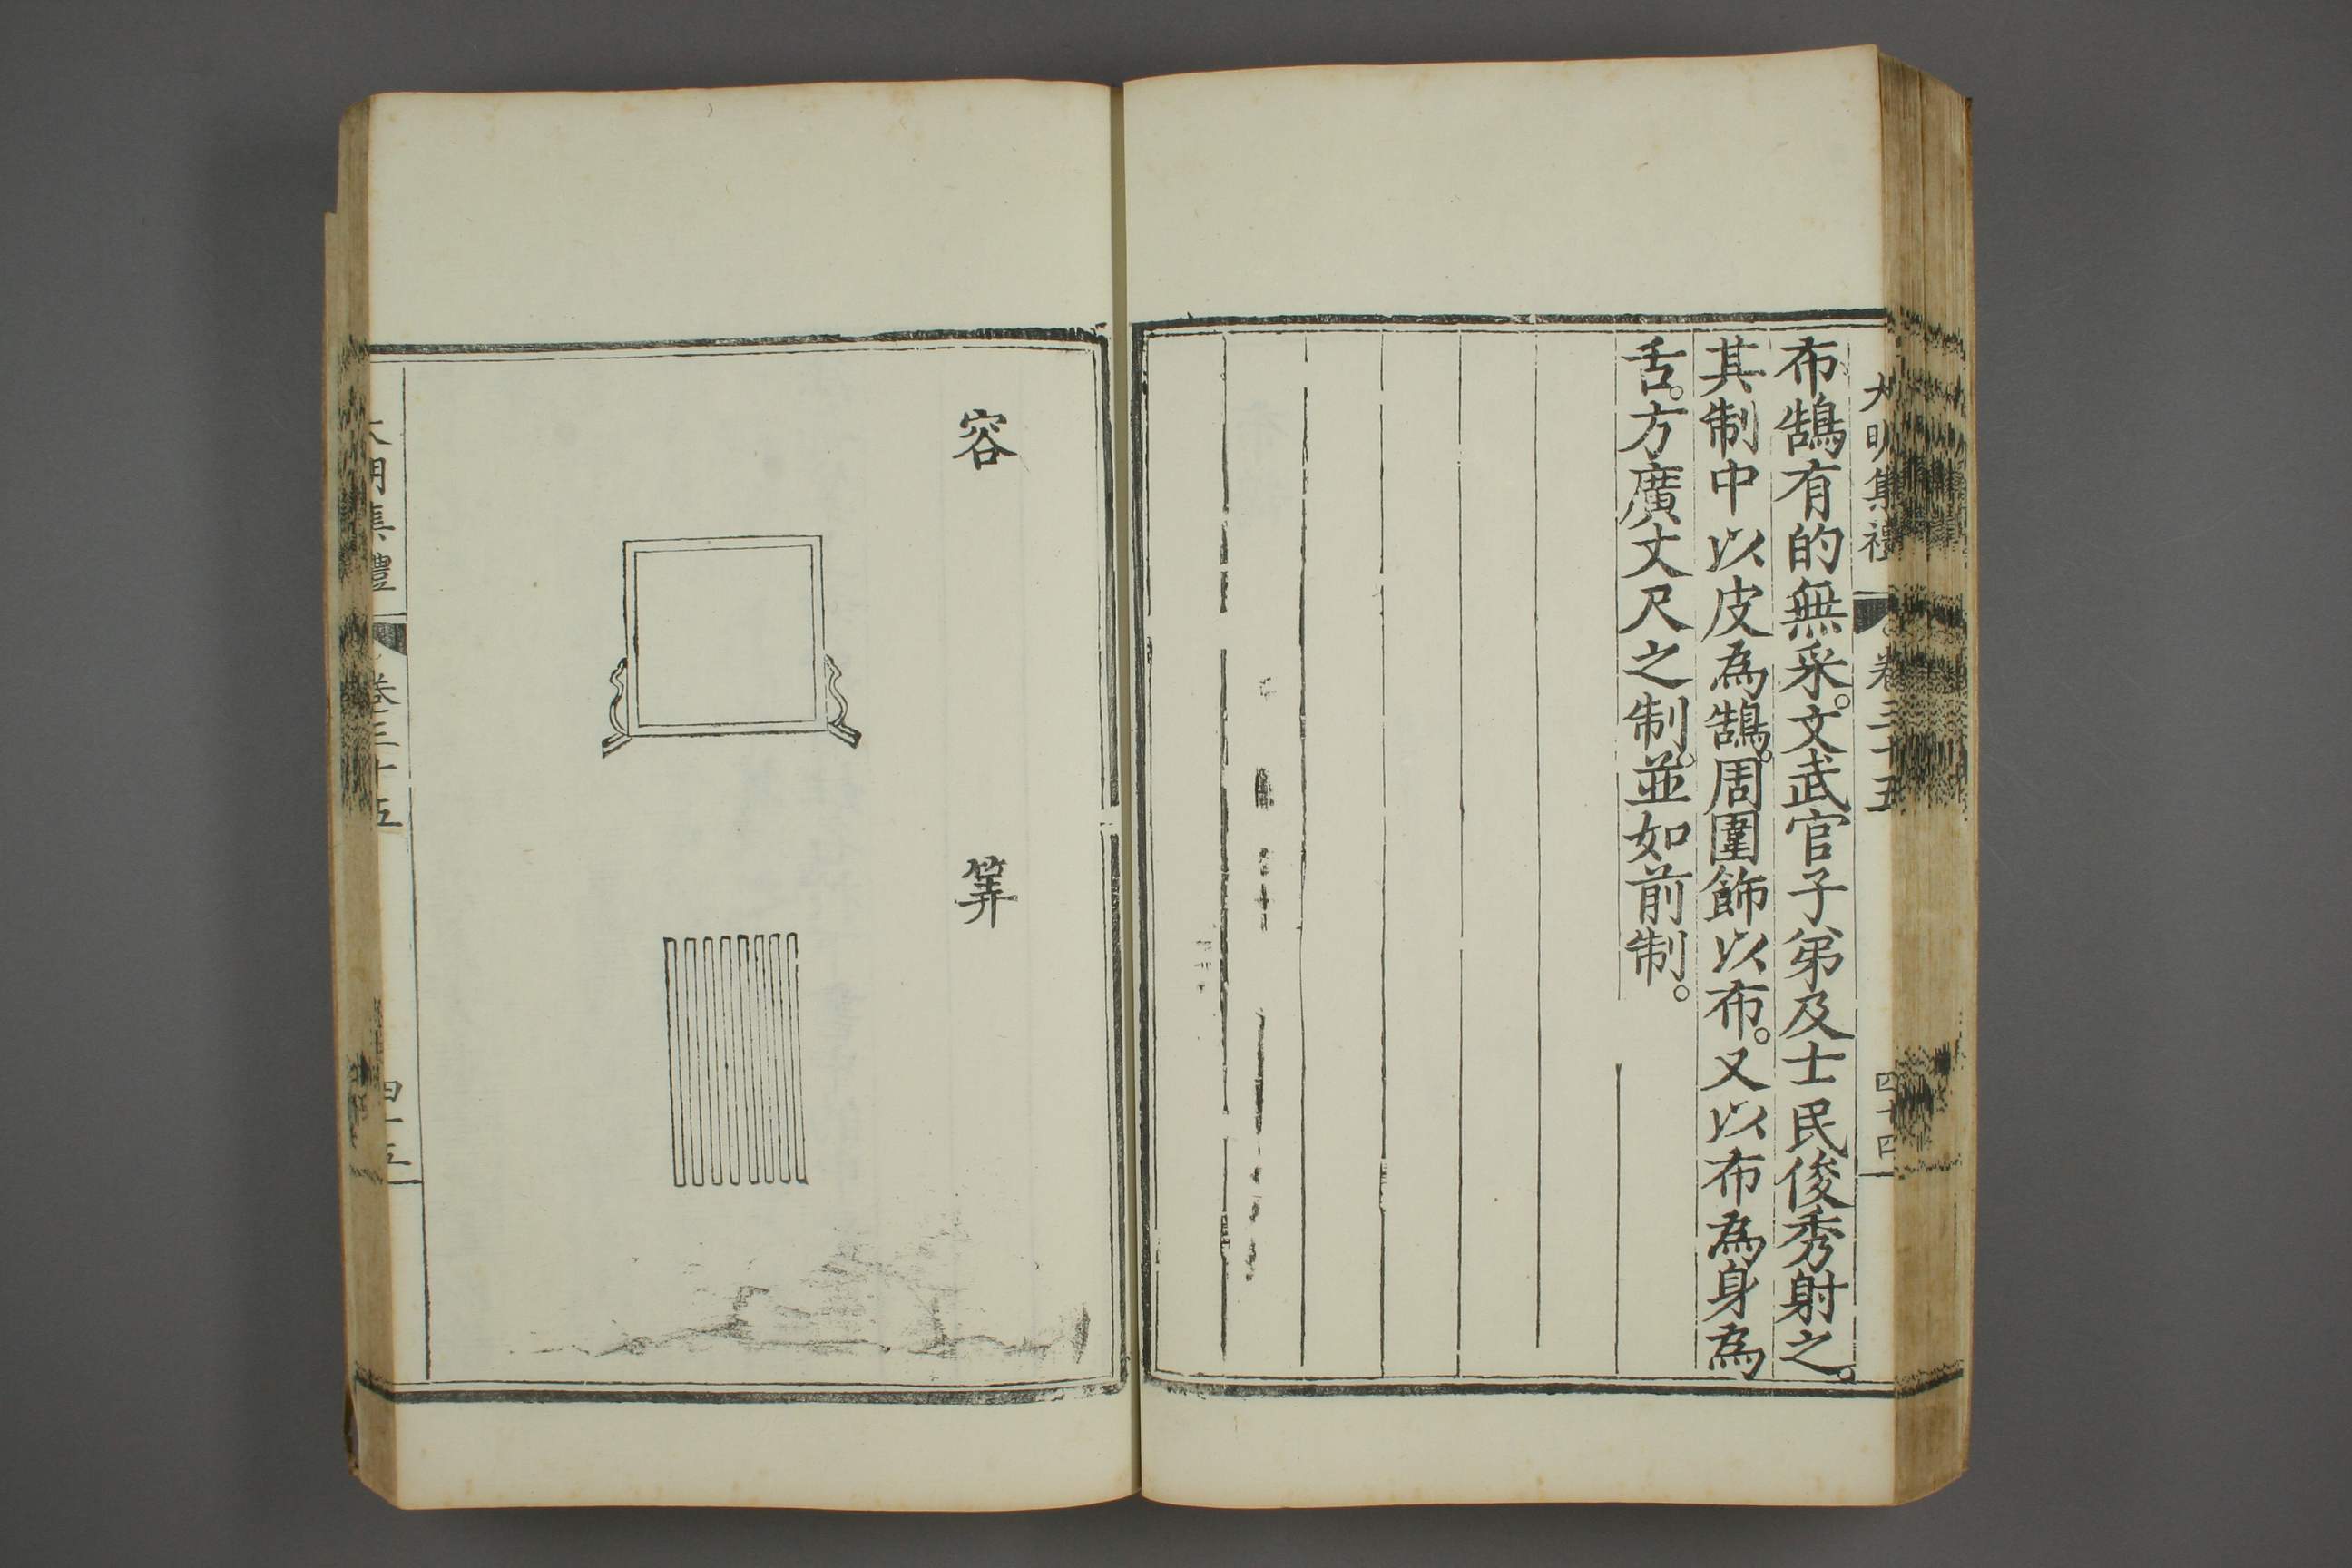 大明集禮 卷三十五 四十四
布鵠有的無采。文武官子弟及士民俊秀射之。
其制中以皮為鵠。周圍飾以布。又以布為身為
舌。方廣丈尺之制。並如前制。
容
筭
大明集禮 卷三十五 四十五